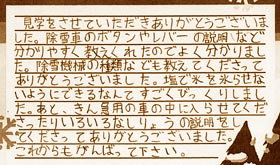 見学をさせていただきありがとうございま
した。除雪車のボタンやレバーの説明などで
分かりやすく教えくれたのでよく分かりまし
た。除雪機械の種類なども教えてくださって
ありがとうございました。塩で氷を氷らせな
いようにできるなんてすごくびっくりしまし
た。あと、きん急用の車の中に入らせてくだ
さったりいろいろなしりょうの説明をし
てくださってありがとうございました。
これからもがんばって下さい。